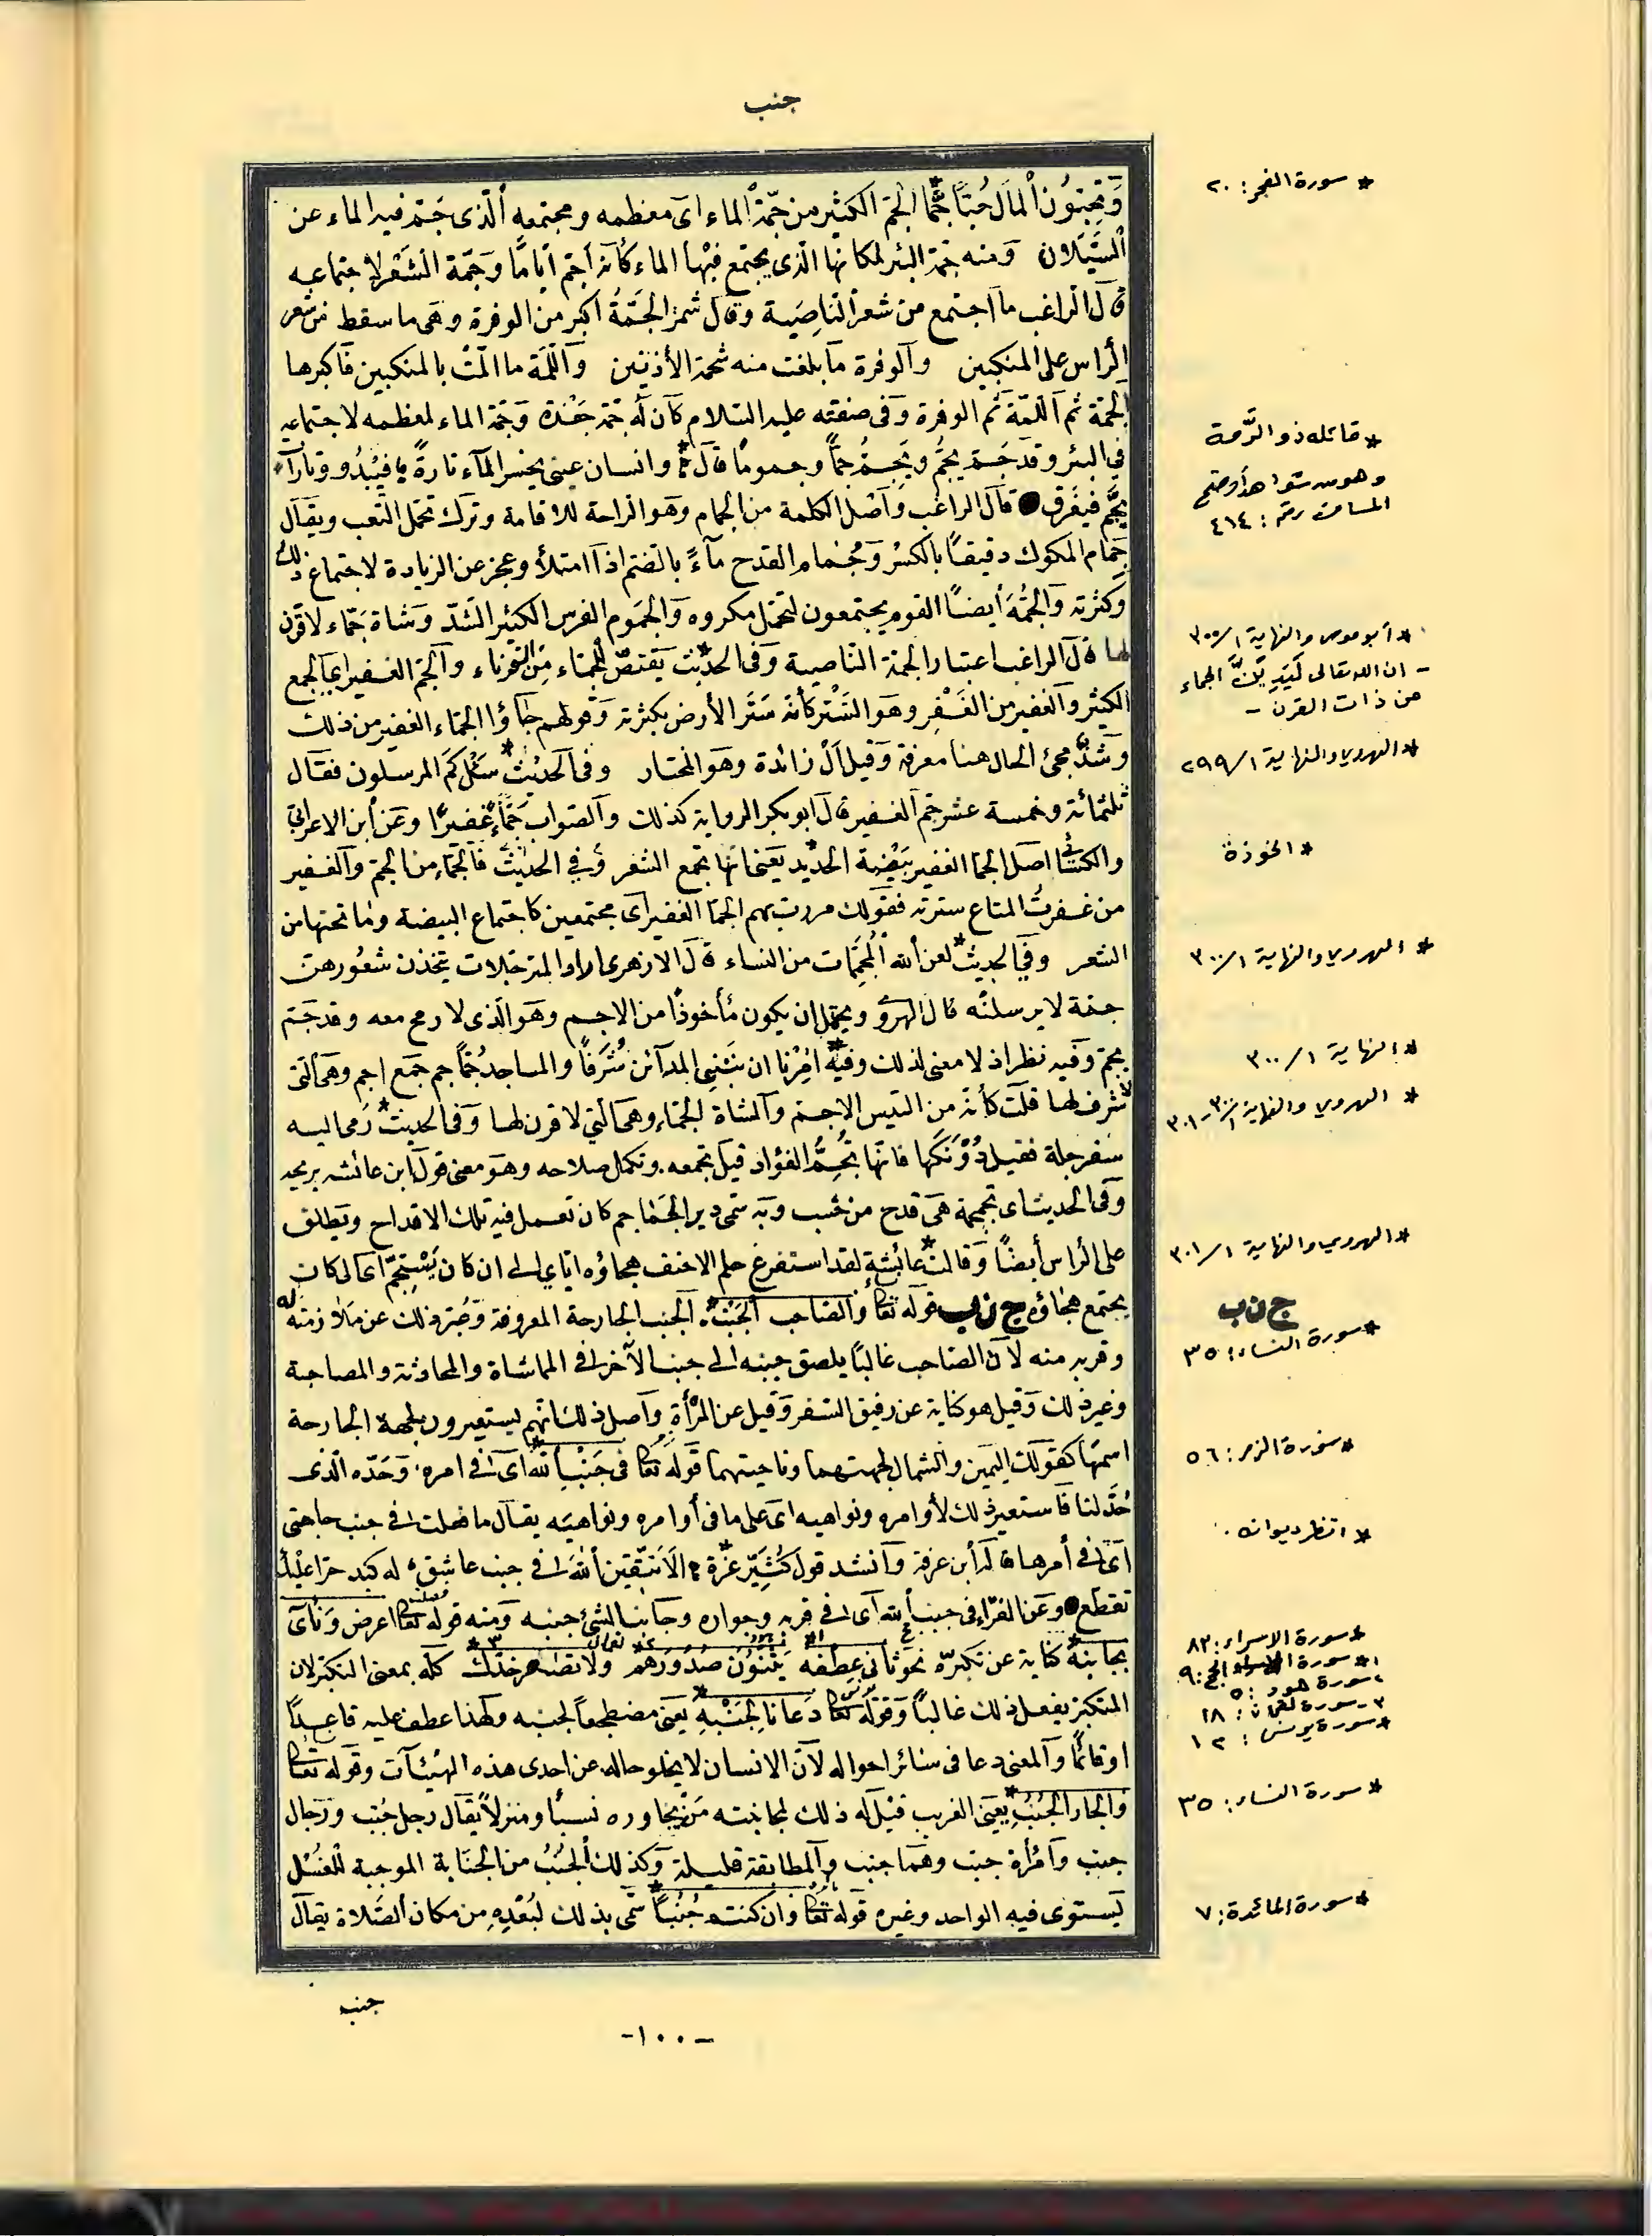 جنب
وَتُحِبُّونَ ٱلْمَالَ حُبًّا جَمًّا* الجم الكثير من جمّة الماء اى معظمه ومجتمعه الّذى جَمّ فيه الماء عن
السَّيَلان ومنه جمّة البئر لمكانها الّذى يجتمع فيها الماء كأنه أجمّ أيامًا وجمّة الشعر لاجتماعه
قال الراغب ما اجتمع من شعر الناصية وقال شمر الجُمّةُ أكبر من الوفرة وهى ما سقط من شعر
الراس على المنكبين والوفرة ما بلغت منه شحمة الأذنين واللّمّة ما المّت بالمنكبين فأكبرها
الجمّة ثم اللّمّة ثم الوفرة وفى صفته عليه السلام كان له جمّة جَعْدة وجمّة الماء لمعظمه لاجتماعه
فى البئر وقد جَمّ يجُمّ ويَجِمّ جمًّا وجموما قال* وانسان عينى يحسر المآء تارةً فيَبْدُو وتارآت
يجمّ فيغرق قال الراغب وأصل الكلمة من الجمام وهو الراحة للاقامة وترك تحمّل التعب ويقال
جمام المكوك دقيقًا بالكسر وجُمام القدح مآءً بالضم اذا امتلأ وعجز عن الزيادة لاجتماع ذلك
وكثرته والجُمّة أيضًا القوم يجتمعون لتحمّل مكروه والجَموم الفرس الكثير الشدّ وشاة جمّاء لا قرن
لها قال الراغب اعتبارا بجمّة الناصية وفى الحديث* يقتصّ للجمّاء من القرناء والجمّ الغفير اى الجمع
الكثير والغفير من الغَفْر وهو السَّتْر كأنه سَتَر الأرض بكثرته وقولهم جاؤا الجمّاء الغفير من ذلك
وشذّ مجئ الحال هنا معرفة وقيل أل زائدة وهو المختار وفى الحديث* سئل كم المرسلون فقال
ثلثمائة وخمسة عشر جمّ الغفير قال ابو بكر الرواية كذلك والصواب جمّاء غفيرًا وعن ابن الاعرابى
والكسائى اصل الجمّا الغفير بيضة الحديد* يعنى انها تجمع الشعر وفى الحديث فالجمّاء من الجمّ والغفير
من غفرتُ المتاع سترته فقولك مررت بهم الجمّا الغفير اى مجتمعين كاجتماع البيضة وما تحتها من
الشعر وفى الحديث* لعن الله المُجمّمات من النساء قال الازهرى اراد المترجلات يتخذن شعورهنّ
جمّة لا يرسلنه قال الهروى ويحتمل ان يكون مأخوذًا من الاجم وهو الّذى لا رمح معه وقد جَمّ
يجمّ وفيه نظر اذ لا معنى لذلك وفيه* اُمِرْنا ان نَبْنِى المدآئن شُرَفًا والمساجد جُمًّا جم جَمع اجم وهى التى
لا شرف لها قلت كأنه من التيس الاجم والشاة الجمّاء وهى التى لا قرن لها وفى الحديث* رَمى اليه
سفرجلة فقيل دُوْنَكَها فانّها تُجِمُّ الفؤاد قيل تجمعه وتكمل صلاحه وهو معنى قول ابن عائشة يريحه
وفى الحديث اتى بجمجمة هى قدح من خشب وبه سمّى دير الجماجم كان تعمل فيه تلك الاقداح ويطلق
على الراس أيضًا وقالت* عائشة لقد استفرغ حلم الاحنف هجاؤه اياى الى ان كان يَسْتَجِمّ اى الى كان
يجتمع هجاؤه ج ن ب قوله تعالى والصاحب بالجَنْب* الجنب الجارحة المعروفة وعُبّر بذلك عن ملازمته له
وقربه منه لأن الصاحب غالبًا يلصق جنبه الى جنب الآخر فى المماشاة والمحادثة والمصاحبة
وغير ذلك وقيل هو كناية عن رفيق السفر وقيل عن المرأة وأصل ذلك انهم يستعيرون لجهة الجارحة
اسمها كقولك اليمين والشمال لجهتهما وناحيتهما قوله تعالى فى جَنْبِ ٱللّٰه* اى فى امره وحَدّه الذى
حُدّ لنا فاستعير ذلك لأوامره ونواهيه اى على ما فى أوامره ونواهيه يقال ما فعلت فى جنب حاجتى
اى فى أمرها قاله ابن عرفة وأنشد قول كُثَيّر عزّة* الا تتّقين الله فى جنب عاشق له كبد حرّا عليك
تقطع وعن الفرّاء فى جنب الله اى فى قربه وجواره وجانب الشئ جنبه ومنه قوله تعالى اعرض وَنَأى
بجانبه* كناية عن تكبّره نحو ثانى عِطْفه يَثْنُوْنَ صُدُوْرَهُمْ ولا تصعر خدّك كلّه بمعنى التكبر لان
المتكبر يفعل ذلك غالبًا وقوله تعالى دَعَانَا لِجَنْبِهِ* يعنى مضطجعًا لجنبه ولهذا عطف عليه قاعدًا
او قائمًا والمعنى دعا فى سائر احواله لأن الانسان لا يخلو حاله عن احدى هذه الهيئآت وقوله تعالى
والجار الجُنُبِ* يعنى الغريب قيل له ذلك لمجانبته مَنْ يجاوره نسبًا ومنزلاً يقال رجل جُنب ورجال
جنب وامرأة جنب وهما جنب والمطابقة قليلة وكذلك الجُنُبُ من الجنابة الموجبة للغسْل
يستوى فيه الواحد وغيره قوله تعالى وان كنتم جُنُبًا* سمّى بذلك لبُعْدِهِ من مكان الصّلاة يقال
جنب
-١٠٠-
* سورة الفجر: ٢٠
* قائله ذو الرّمة
وهو من شواهد أوضح
المسالك رقم: ٤١٤
* أبو موسى والنهاية ١/٣٠٠
- ان الله تعالى لَيَدِيَنَّ الجماء
من ذات القرن -
* الهروى والنهاية ١/٢٩٩
* الخوذة
* الهروى والنهاية ١/٣٠٠
* النهاية ١/٣٠٠
* الهروى والنهاية ١/٣٠٠-٣٠١
* الهروى والنهاية ١/٣٠١
ج ن ب
* سورة النساء: ٣٥
* سورة الزمر: ٥٦
* انظر ديوانه.
* سورة الاسراء: ٨٣
١* سورة الحج: ٩
٢ سورة هود: ٥
٣ سورة لقمان: ١٨
* سورة يونس: ١٢
* سورة النساء: ٣٥
* سورة المائدة: ٧